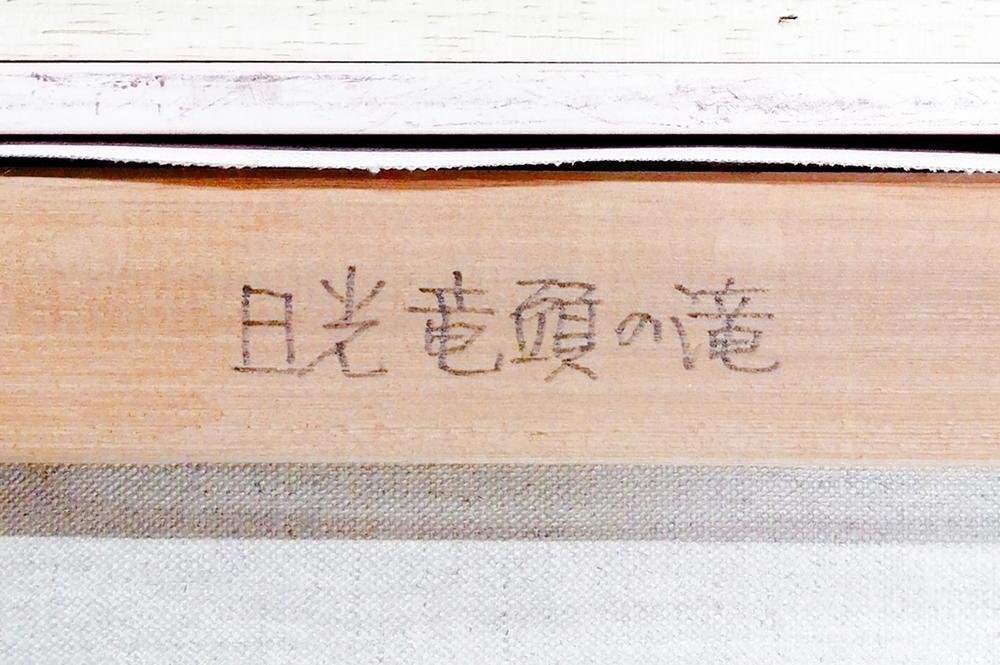 日光竜頭の滝